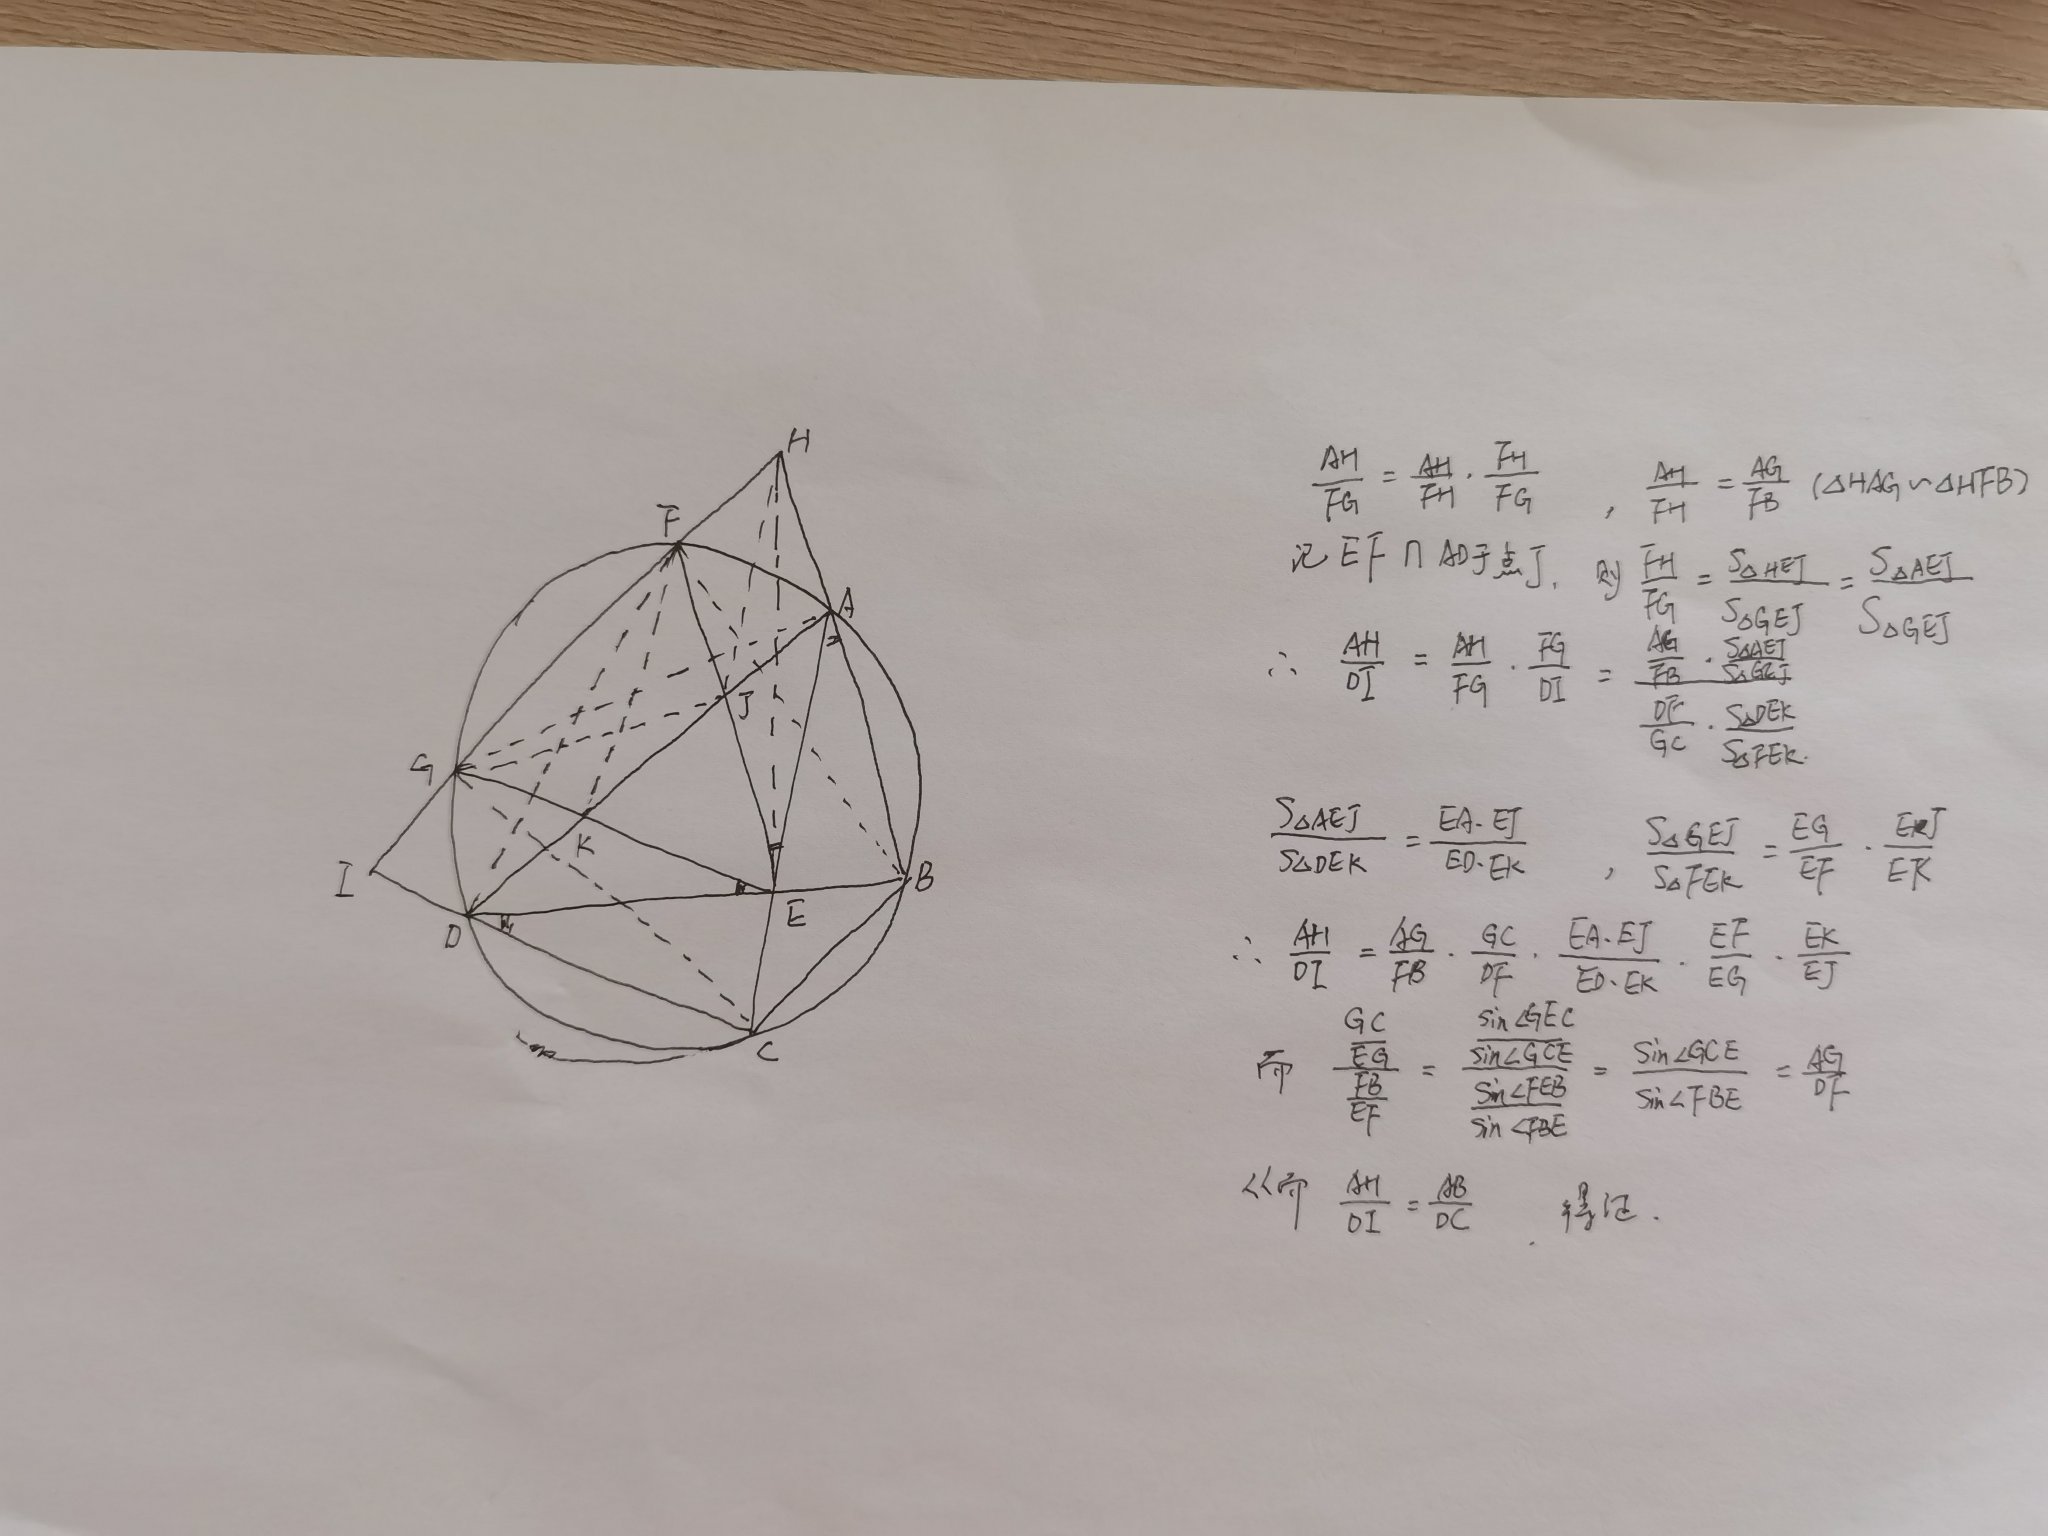 H
F
A
J
G
K
I
E
B
D
C
AH/FG = AH/FH · FH/FG , AH/FH = AG/FB (△HAG∽△HFB)
记EF∩AD于点J, 则 FH/FG = S△HEJ/S△GEJ = S△AEJ/S△GEJ
∴ AH/DI = AH/FG · FG/DI = (AG/FB · S△AEJ/S△GEJ)/(DF/GC · S△DEK/S△FEK)
S△AEJ/S△DEK = EA·EJ/ED·EK , S△GEJ/S△FEK = EG/EF · EJ/EK
∴ AH/DI = AG/FB · GC/DF · EA·EJ/ED·EK · EF/EG · EK/EJ
而 (GC/EG)/(FB/EF) = (sin∠GEC/sin∠GCE)/(sin∠FEB/sin∠FBE) = sin∠GCE/sin∠FBE = AG/DF
从而 AH/DI = AB/DC . 得证.